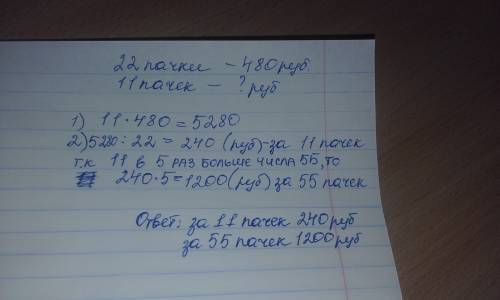 22 пачки - 480 руб.
11 пачек - ? руб
1) 11 · 480 = 5280
2) 5280 : 22 = 240 (руб) - за 11 пачек
т.к 11 в 5 РАЗ БОЛЬШЕ ЧИСЛА 55, то
240 · 5 = 1200 (руб) за 55 пачек
Ответ: за 11 пачек 240 руб
за 55 пачек 1200 руб